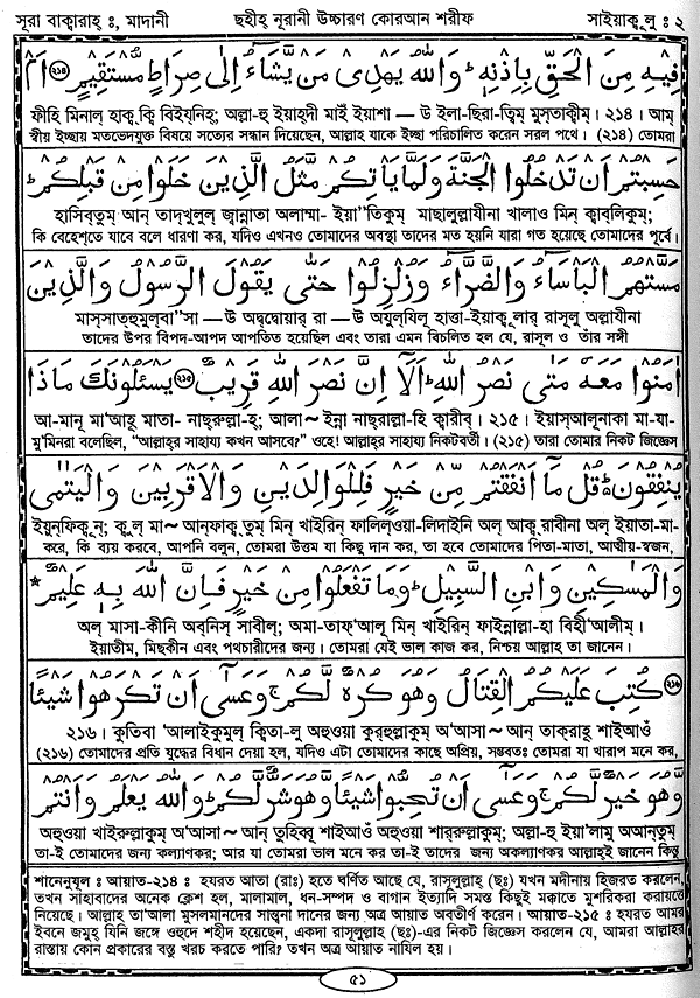 সূরা বাক্বারাহ্ ঃ, মাদানী ছহীহ্ নূরানী উচ্চারণ কোরআন শরীফ সাইয়াক্বূলু ঃ ২
فِيْهِ مِنَ الْحَقِّ بِاِذْنِهٖ ؕ وَاللّٰهُ يَهْدِىْ مَنْ يَّشَآءُ اِلٰى صِرَاطٍ مُّسْتَقِيْمٍ ﴿২১৪﴾ اَمْ
ফীহি মিনাল্ হাক্ব্ ক্বি বিইয্নিহ্; অল্লা-হু ইয়াহ্দী মাইঁ ইয়াশা — উ ইলা-ছিরা-ত্বিম্ মুস্তাক্বীম্। ২১৪। আম্
স্বীয় ইচ্ছায় মতভেদযুক্ত বিষয়ে সত্যের সন্ধান দিয়েছেন, আল্লাহ যাকে ইচ্ছা পরিচালিত করেন সরল পথে। (২১৪) তোমরা
حَسِبْتُمْ اَنْ تَدْخُلُوا الْجَنَّةَ وَلَمَّا يَاْتِكُمْ مَّثَلُ الَّذِيْنَ خَلَوْا مِنْ قَبْلِكُمْ ؕ
হাসিব্তুম্ আন্ তাদ্খুলুল্ জ্বান্নাতা অলাম্মা- ইয়া"তিকুম্ মাছালুল্লাযীনা খালাও মিন্ ক্বাব্লিকুম্;
কি বেহেশ্তে যাবে বলে ধারণা কর, যদিও এখনও তোমাদের অবস্থা তাদের মত হয়নি যারা গত হয়েছে তোমাদের পূর্বে।
مَسَّتْهُمُ الْبَاْسَآءُ وَالضَّرَّآءُ وَزُلْزِلُوْا حَتّٰى يَقُوْلَ الرَّسُوْلُ وَالَّذِيْنَ
মাস্সাত্হুমুল্বা"সা — উ অদ্ব্দ্বোয়ার্ রা — উ অযুল্যিলূ হাত্তা-ইয়াক্বূলার্ রাসূলু অল্লাযীনা
তাদের উপর বিপদ-আপদ আপতিত হয়েছিল এবং তারা এমন বিচলিত হল যে, রাসূল ও তাঁর সঙ্গী
اٰمَنُوْا مَعَهٗ مَتٰى نَصْرُ اللّٰهِ ؕ اَلَآ اِنَّ نَصْرَ اللّٰهِ قَرِيْبٌ ﴿২১৫﴾ يَسْـَٔلُوْنَكَ مَاذَا
আ-মানূ মা'আহূ মাতা- নাছ্রুল্লা-হ্; আলা ~ ইন্না নাছ্রাল্লা-হি ক্বারীব্। ২১৫। ইয়াস্আলূনাকা মা-যা-
মু'মিনরা বলেছিল, "আল্লাহ্র সাহায্য কখন আসবে?" ওহে! আল্লাহ্র সাহায্য নিকটবর্তী। (২১৫) তারা তোমার নিকট জিজ্ঞেস
يُنْفِقُوْنَ ؕ قُلْ مَآ اَنْفَقْتُمْ مِّنْ خَيْرٍ فَلِلْوَالِدَيْنِ وَالْاَقْرَبِيْنَ وَالْيَتٰمٰى
ইয়ুন্ফিক্বূন্; ক্বুল্ মা~ আন্ফাক্ব্তুম্ মিন্ খাইরিন্ ফালিল্ওয়া-লিদাইনি অল্ আক্ব্ রাবীনা অল্ ইয়াতা-মা-
করে, কি ব্যয় করবে, আপনি বলুন, তোমরা উত্তম যা কিছু দান কর, তা হবে তোমাদের পিতা-মাতা, আত্মীয়-স্বজন,
وَالْمَسٰكِيْنِ وَابْنِ السَّبِيْلِ ؕ وَمَا تَفْعَلُوْا مِنْ خَيْرٍ فَاِنَّ اللّٰهَ بِهٖ عَلِيْمٌ *
অল্ মাসা-কীনি অব্নিস্ সাবীল্; অমা-তাফ্'আলূ মিন্ খাইরিন্ ফাইন্নাল্লা-হা বিহী'আলীম্।
ইয়াতীম, মিছকীন এবং পথচারীদের জন্য। তোমরা যেই ভাল কাজ কর, নিশ্চয় আল্লাহ তা জানেন।
﴿২১৬﴾ كُتِبَ عَلَيْكُمُ الْقِتَالُ وَهُوَ كُرْهٌ لَّكُمْ ۚ وَعَسٰٓى اَنْ تَكْرَهُوْا شَيْـًٔا
২১৬। কুতিবা 'আলাইকুমুল্ ক্বিতা-লু অহুওয়া কুর্হুল্লাকুম্ অ'আসা ~ আন্ তাক্রাহূ শাইআওঁ
(২১৬) তোমাদের প্রতি যুদ্ধের বিধান দেয়া হল, যদিও এটা তোমাদের কাছে অপ্রিয়, সম্ভবতঃ তোমরা যা খারাপ মনে কর,
وَّهُوَ خَيْرٌ لَّكُمْ ۚ وَعَسٰٓى اَنْ تُحِبُّوْا شَيْـًٔا وَّهُوَ شَرٌّ لَّكُمْ ؕ وَاللّٰهُ يَعْلَمُ وَاَنْتُمْ
অহুওয়া খাইরুল্লাকুম্ অ'আসা ~ আন্ তুহিব্বূ শাইআওঁ অহুওয়া শার্রুল্লাকুম্; অল্লা-হু ইয়া'লামু অআন্তুম্
তা-ই তোমাদের জন্য কল্যাণকর; আর যা তোমরা ভাল মনে কর তা-ই তাদের জন্য অকল্যাণকর আল্লাহ্ই জানেন কিন্তু
শানেনুযূল ঃ আয়াত-২১৪ ঃ হযরত আতা (রাঃ) হতে বর্ণিত আছে যে, রাসূলুল্লাহ্ (ছঃ) যখন মদীনায় হিজরত করলেন,
তখন সাহাবাদের অনেক ক্লেশ হল, মালামাল, ধন-সম্পদ ও বাগান ইত্যাদি সমস্ত কিছুই মক্কাতে মুশরিকরা করায়ত্তে
নিয়েছে। আল্লাহ তা'আলা মুসলমানদের সান্ত্বনা দানের জন্য অত্র আয়াত অবতীর্ণ করেন। আয়াত-২১৫ ঃ হযরত আমর
ইবনে জমুহ্ যিনি জঙ্গে ওহুদে শহীদ হয়েছেন, একদা রাসূলুল্লাহ্ (ছঃ)-এর নিকট জিজ্ঞেস করলেন যে, আমরা আল্লাহর
রাস্তায় কোন প্রকারের বস্তু খরচ করতে পারি? তখন অত্র আয়াত নাযিল হয়।
৫১